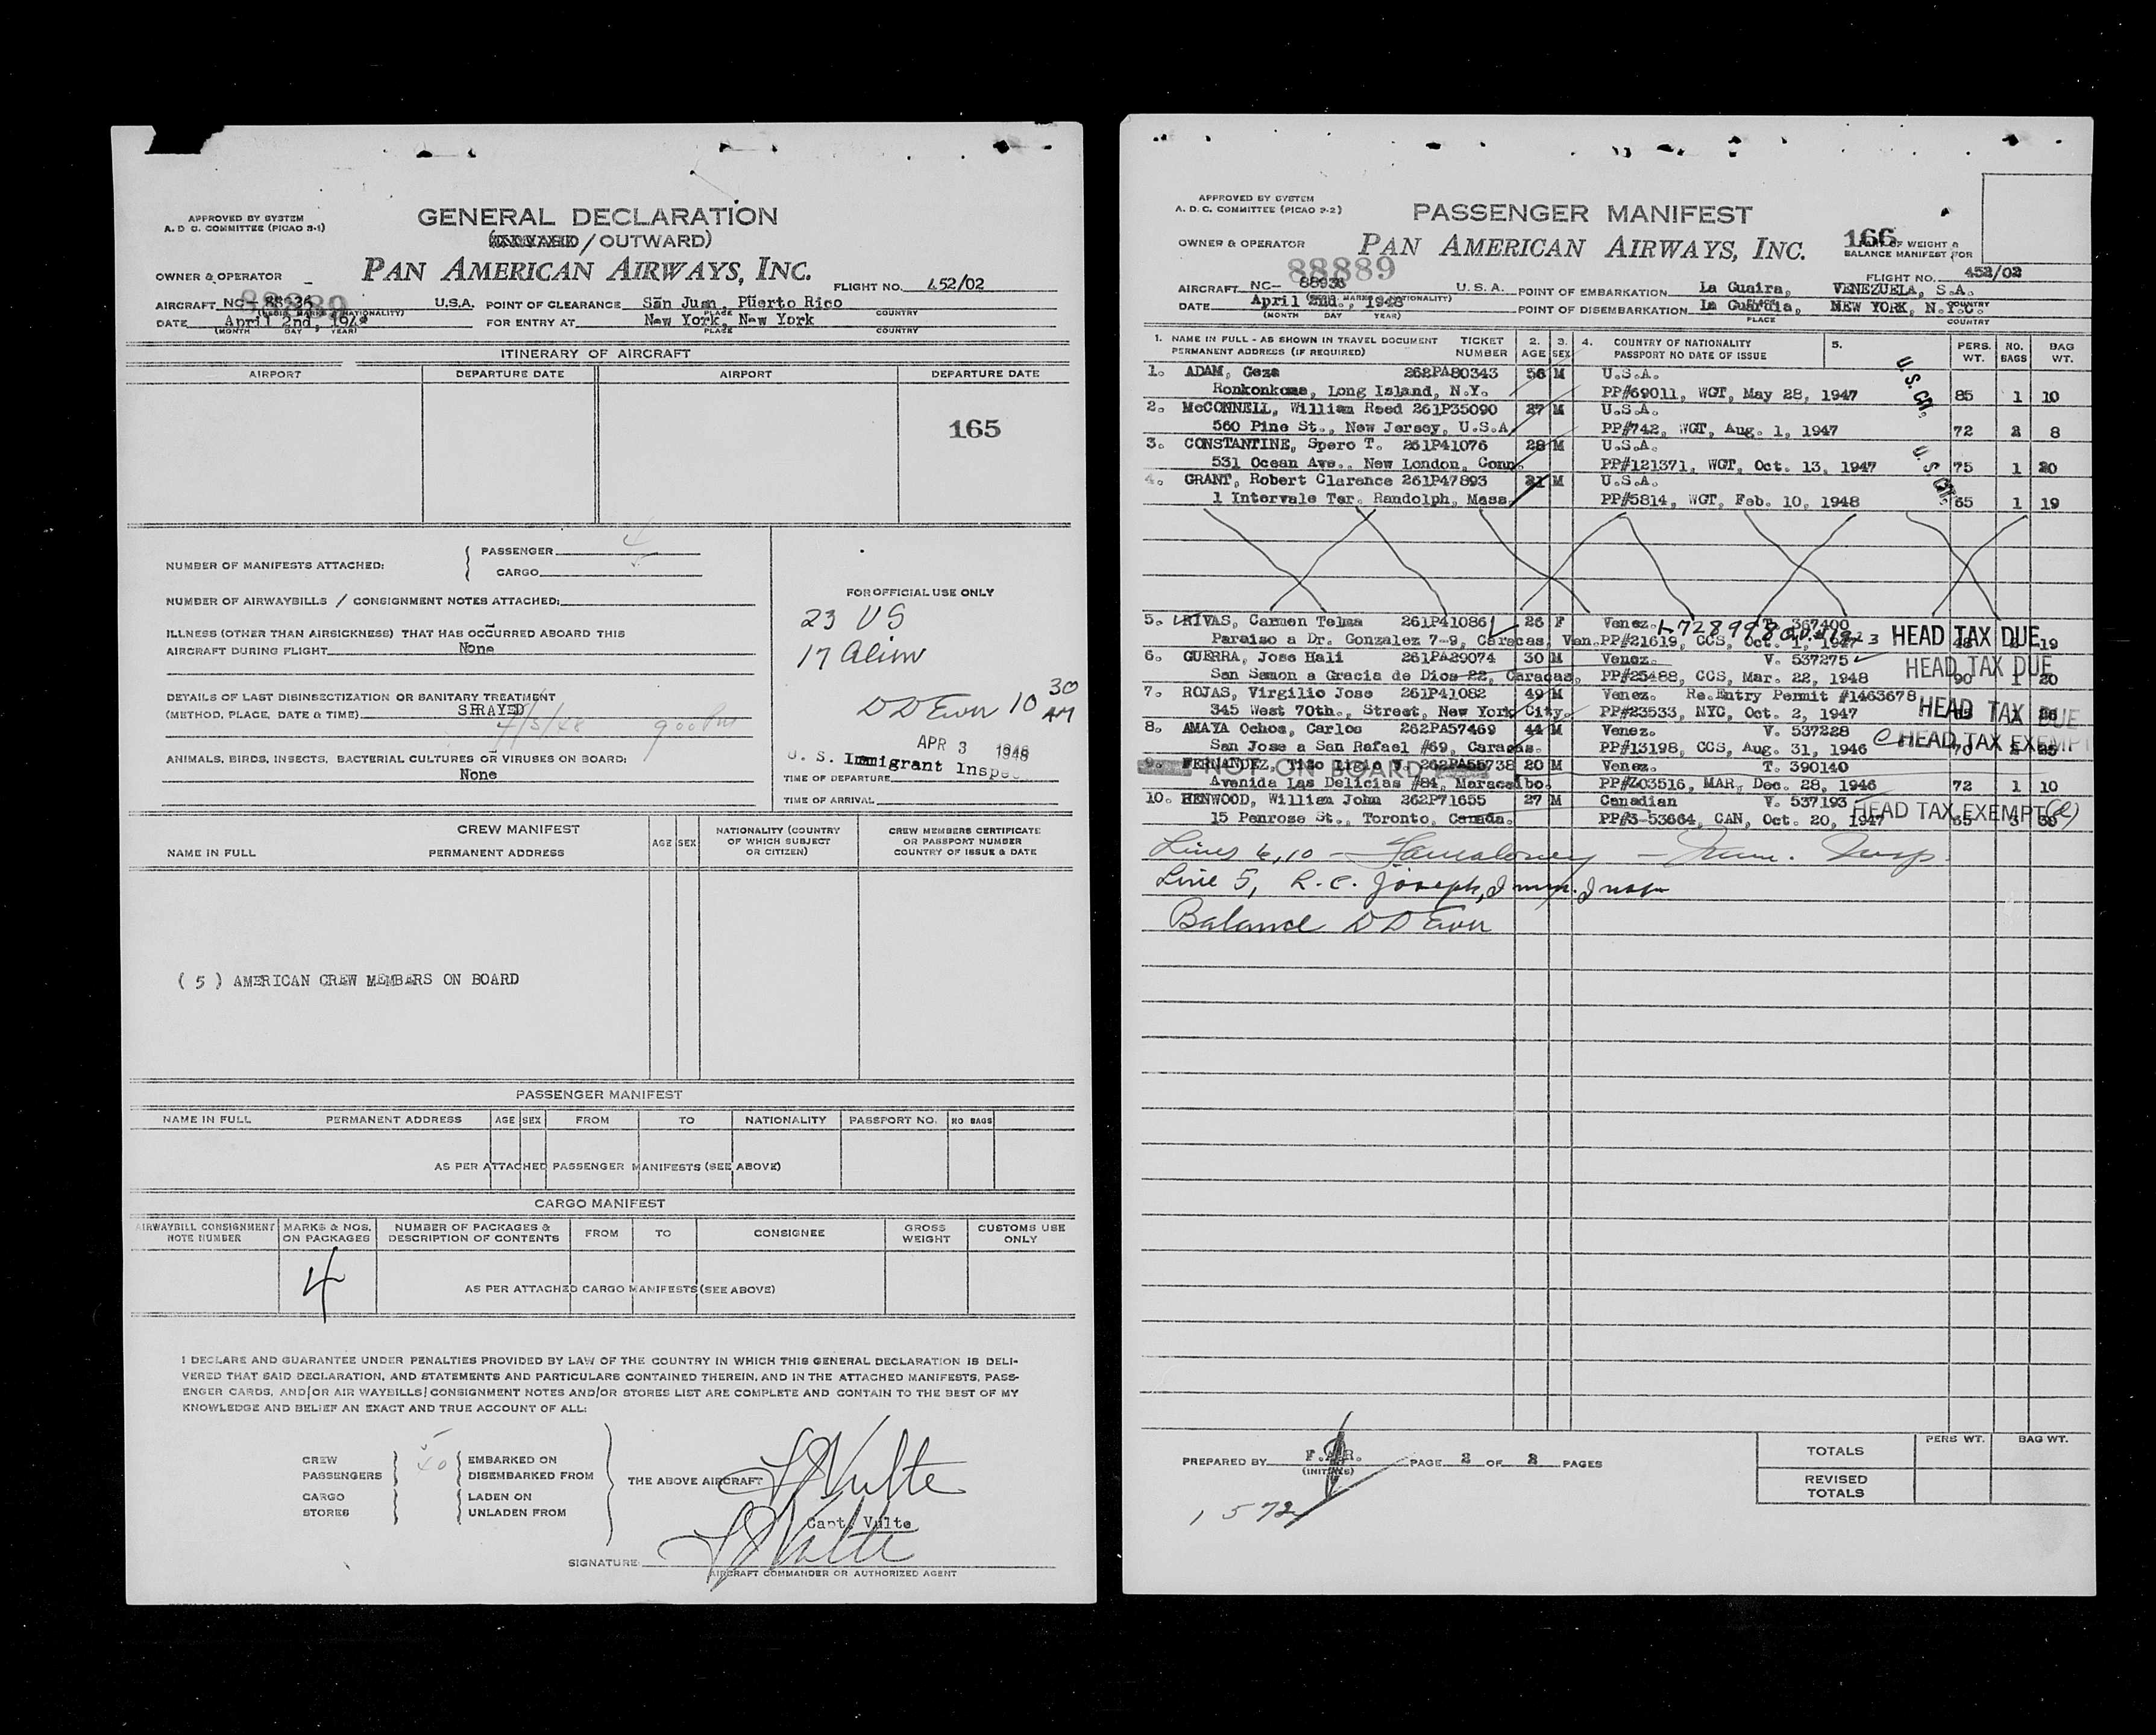 APPROVED BY SYSTEM
A. D. C. COMMITTEE (PICAO 9-1)
GENERAL DECLARATION
(INWARD / OUTWARD)
OWNER & OPERATOR PAN AMERICAN AIRWAYS, INC. FLIGHT NO. 452/02
88889
AIRCRAFT NC- 88936 U.S.A. POINT OF CLEARANCE San Juan, Puerto Rico
(REGIS. MARKS & NATIONALITY) PLACE COUNTRY
DATE April 2nd, 1948 FOR ENTRY AT New York, New York
(MONTH DAY YEAR) PLACE COUNTRY
ITINERARY OF AIRCRAFT
AIRPORT DEPARTURE DATE AIRPORT DEPARTURE DATE
165
NUMBER OF MANIFESTS ATTACHED: { PASSENGER 4
CARGO
FOR OFFICIAL USE ONLY
NUMBER OF AIRWAYBILLS / CONSIGNMENT NOTES ATTACHED:
23 US
ILLNESS (OTHER THAN AIRSICKNESS) THAT HAS OCCURRED ABOARD THIS
AIRCRAFT DURING FLIGHT None
17 Alien
DETAILS OF LAST DISINSECTIZATION OR SANITARY TREATMENT
(METHOD, PLACE, DATE & TIME) SPRAYED
4/3/48 900 PM
D D Ewer 10 30 AM
APR 3 1948
U. S. Immigrant Inspec
ANIMALS, BIRDS, INSECTS, BACTERIAL CULTURES OR VIRUSES ON BOARD:
None
TIME OF DEPARTURE
TIME OF ARRIVAL
CREW MANIFEST
NAME IN FULL PERMANENT ADDRESS AGE SEX NATIONALITY (COUNTRY OF WHICH SUBJECT OR CITIZEN) CREW MEMBERS CERTIFICATE OR PASSPORT NUMBER COUNTRY OF ISSUE & DATE
( 5 ) AMERICAN CREW MEMBERS ON BOARD
PASSENGER MANIFEST
NAME IN FULL PERMANENT ADDRESS AGE SEX FROM TO NATIONALITY PASSPORT NO. NO BAGS
AS PER ATTACHED PASSENGER MANIFESTS (SEE ABOVE)
CARGO MANIFEST
AIRWAYBILL CONSIGNMENT NOTE NUMBER MARKS & NOS. ON PACKAGES NUMBER OF PACKAGES & DESCRIPTION OF CONTENTS FROM TO CONSIGNEE GROSS WEIGHT CUSTOMS USE ONLY
4
AS PER ATTACHED CARGO MANIFESTS (SEE ABOVE)
I DECLARE AND GUARANTEE UNDER PENALTIES PROVIDED BY LAW OF THE COUNTRY IN WHICH THIS GENERAL DECLARATION IS DELI-
VERED THAT SAID DECLARATION, AND STATEMENTS AND PARTICULARS CONTAINED THEREIN, AND IN THE ATTACHED MANIFESTS, PASS-
ENGER CARDS, AND/OR AIR WAYBILLS/CONSIGNMENT NOTES AND/OR STORES LIST ARE COMPLETE AND CONTAIN TO THE BEST OF MY
KNOWLEDGE AND BELIEF AN EXACT AND TRUE ACCOUNT OF ALL:
CREW EMBARKED ON
PASSENGERS 40 DISEMBARKED FROM THE ABOVE AIRCRAFT
CARGO LADEN ON
STORES UNLADEN FROM
Capt. Vulte
SIGNATURE
AIRCRAFT COMMANDER OR AUTHORIZED AGENT
APPROVED BY SYSTEM
A. D. C. COMMITTEE (PICAO 9-2)
PASSENGER MANIFEST
166
PART OF WEIGHT & BALANCE MANIFEST FOR
OWNER & OPERATOR PAN AMERICAN AIRWAYS, INC.
88889
FLIGHT NO. 452/02
AIRCRAFT NC- 88936 U.S.A. POINT OF EMBARKATION La Guaira, VENEZUELA, S.A.
DATE April 2nd., 1948 POINT OF DISEMBARKATION La Guardia, NEW YORK, N.Y.C.
(MONTH DAY YEAR) PLACE COUNTRY
1. NAME IN FULL - AS SHOWN IN TRAVEL DOCUMENT TICKET 2. 3. 4. COUNTRY OF NATIONALITY 5. PERS. NO. BAG
PERMANENT ADDRESS (IF REQUIRED) NUMBER AGE SEX PASSPORT NO DATE OF ISSUE WT. BAGS WT.
1. ADAM, Geza 262PA80343 56 M U.S.A. U.S. CIT.
Ronkonkoma, Long Island, N.Y. PP#69011, WGT, May 28, 1947 85 1 10
2. McCONNELL, William Reed 261P35090 27 M U.S.A.
560 Pine St., New Jersey, U.S.A. PP#742, WGT, Aug. 1, 1947 72 2 8
3. CONSTANTINE, Spero T. 261P41076 28 M U.S.A. U.S. CIT.
531 Ocean Ave., New London, Conn. PP#121371, WGT, Oct. 13, 1947 75 1 20
4. GRANT, Robert Clarence 261P47893 21 M U.S.A.
1 Intervale Ter. Randolph, Mass. PP#5814, WGT, Feb. 10, 1948 65 1 19
5. RIVAS, Carmen Telma 261P41086 26 F Venez. T. 367400
Paraiso a Dr. Gonzalez 7-9, Caracas, Ven. PP#21619, CCS, Oct. 1, 1947 HEAD TAX DUE 19
6. GUERRA, Jose Hali 261PA29074 30 M Venez. V. 537275
San Samon a Gracia de Dios 22, Caracas, PP#25488, CCS, Mar. 22, 1948 HEAD TAX DUE 90 1 20
7. ROJAS, Virgilio Jose 261P41082 49 M Venez. Re.Entry Permit #1463678
345 West 70th., Street, New York City. PP#23533, NYC, Oct. 2, 1947 HEAD TAX DUE
8. AMAYA Ochoa, Carlos 262PA57469 44 M Venez. V. 537228
San Jose a San Rafael #69, Caracas. PP#13198, CCS, Aug. 31, 1946 HEAD TAX EXEMPT 70
9. FERNANDEZ, Tito Livio V. 262PA55738 20 M Venez. T. 390140
NOT ON BOARD
Avenida Las Delicias #84, Maracaibo. PP#Z03516, MAR, Dec. 28, 1946 72 1 10
10. HENWOOD, William John 262P71655 27 M Canadian V. 537193
15 Penrose St., Toronto, Canada. PP#3-53664, CAN, Oct. 20, 1947 HEAD TAX EXEMPT (e) 65 3
Lines 6, 10 - Imm. Insp.
Line 5, R. C. Joseph, Imm. Insp
Balance D D Ewer
PREPARED BY F.A.R. PAGE 2 OF 2 PAGES
(INITIALS)
TOTALS PERS WT. BAG WT.
REVISED TOTALS
1572